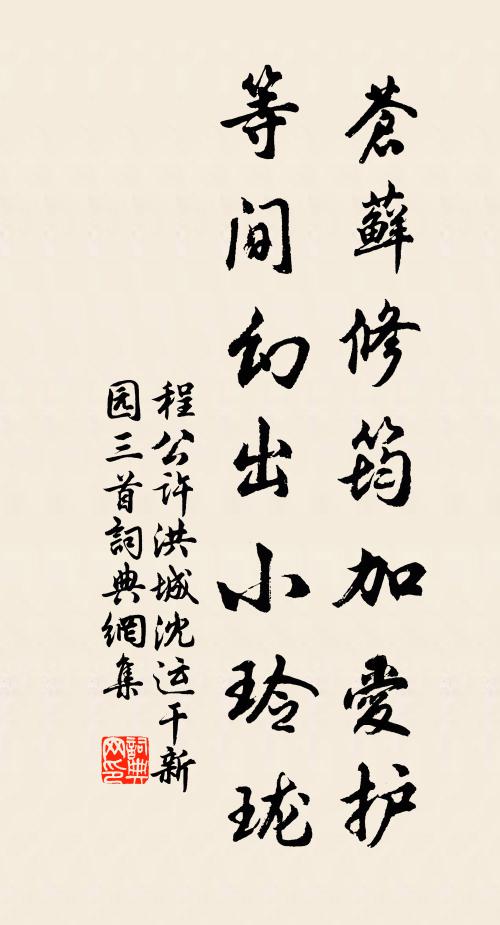 苍藓修筠加爱护
等间幻出小玲珑
程公许洪城沈运干新
园三首詞典網集
詞典网印